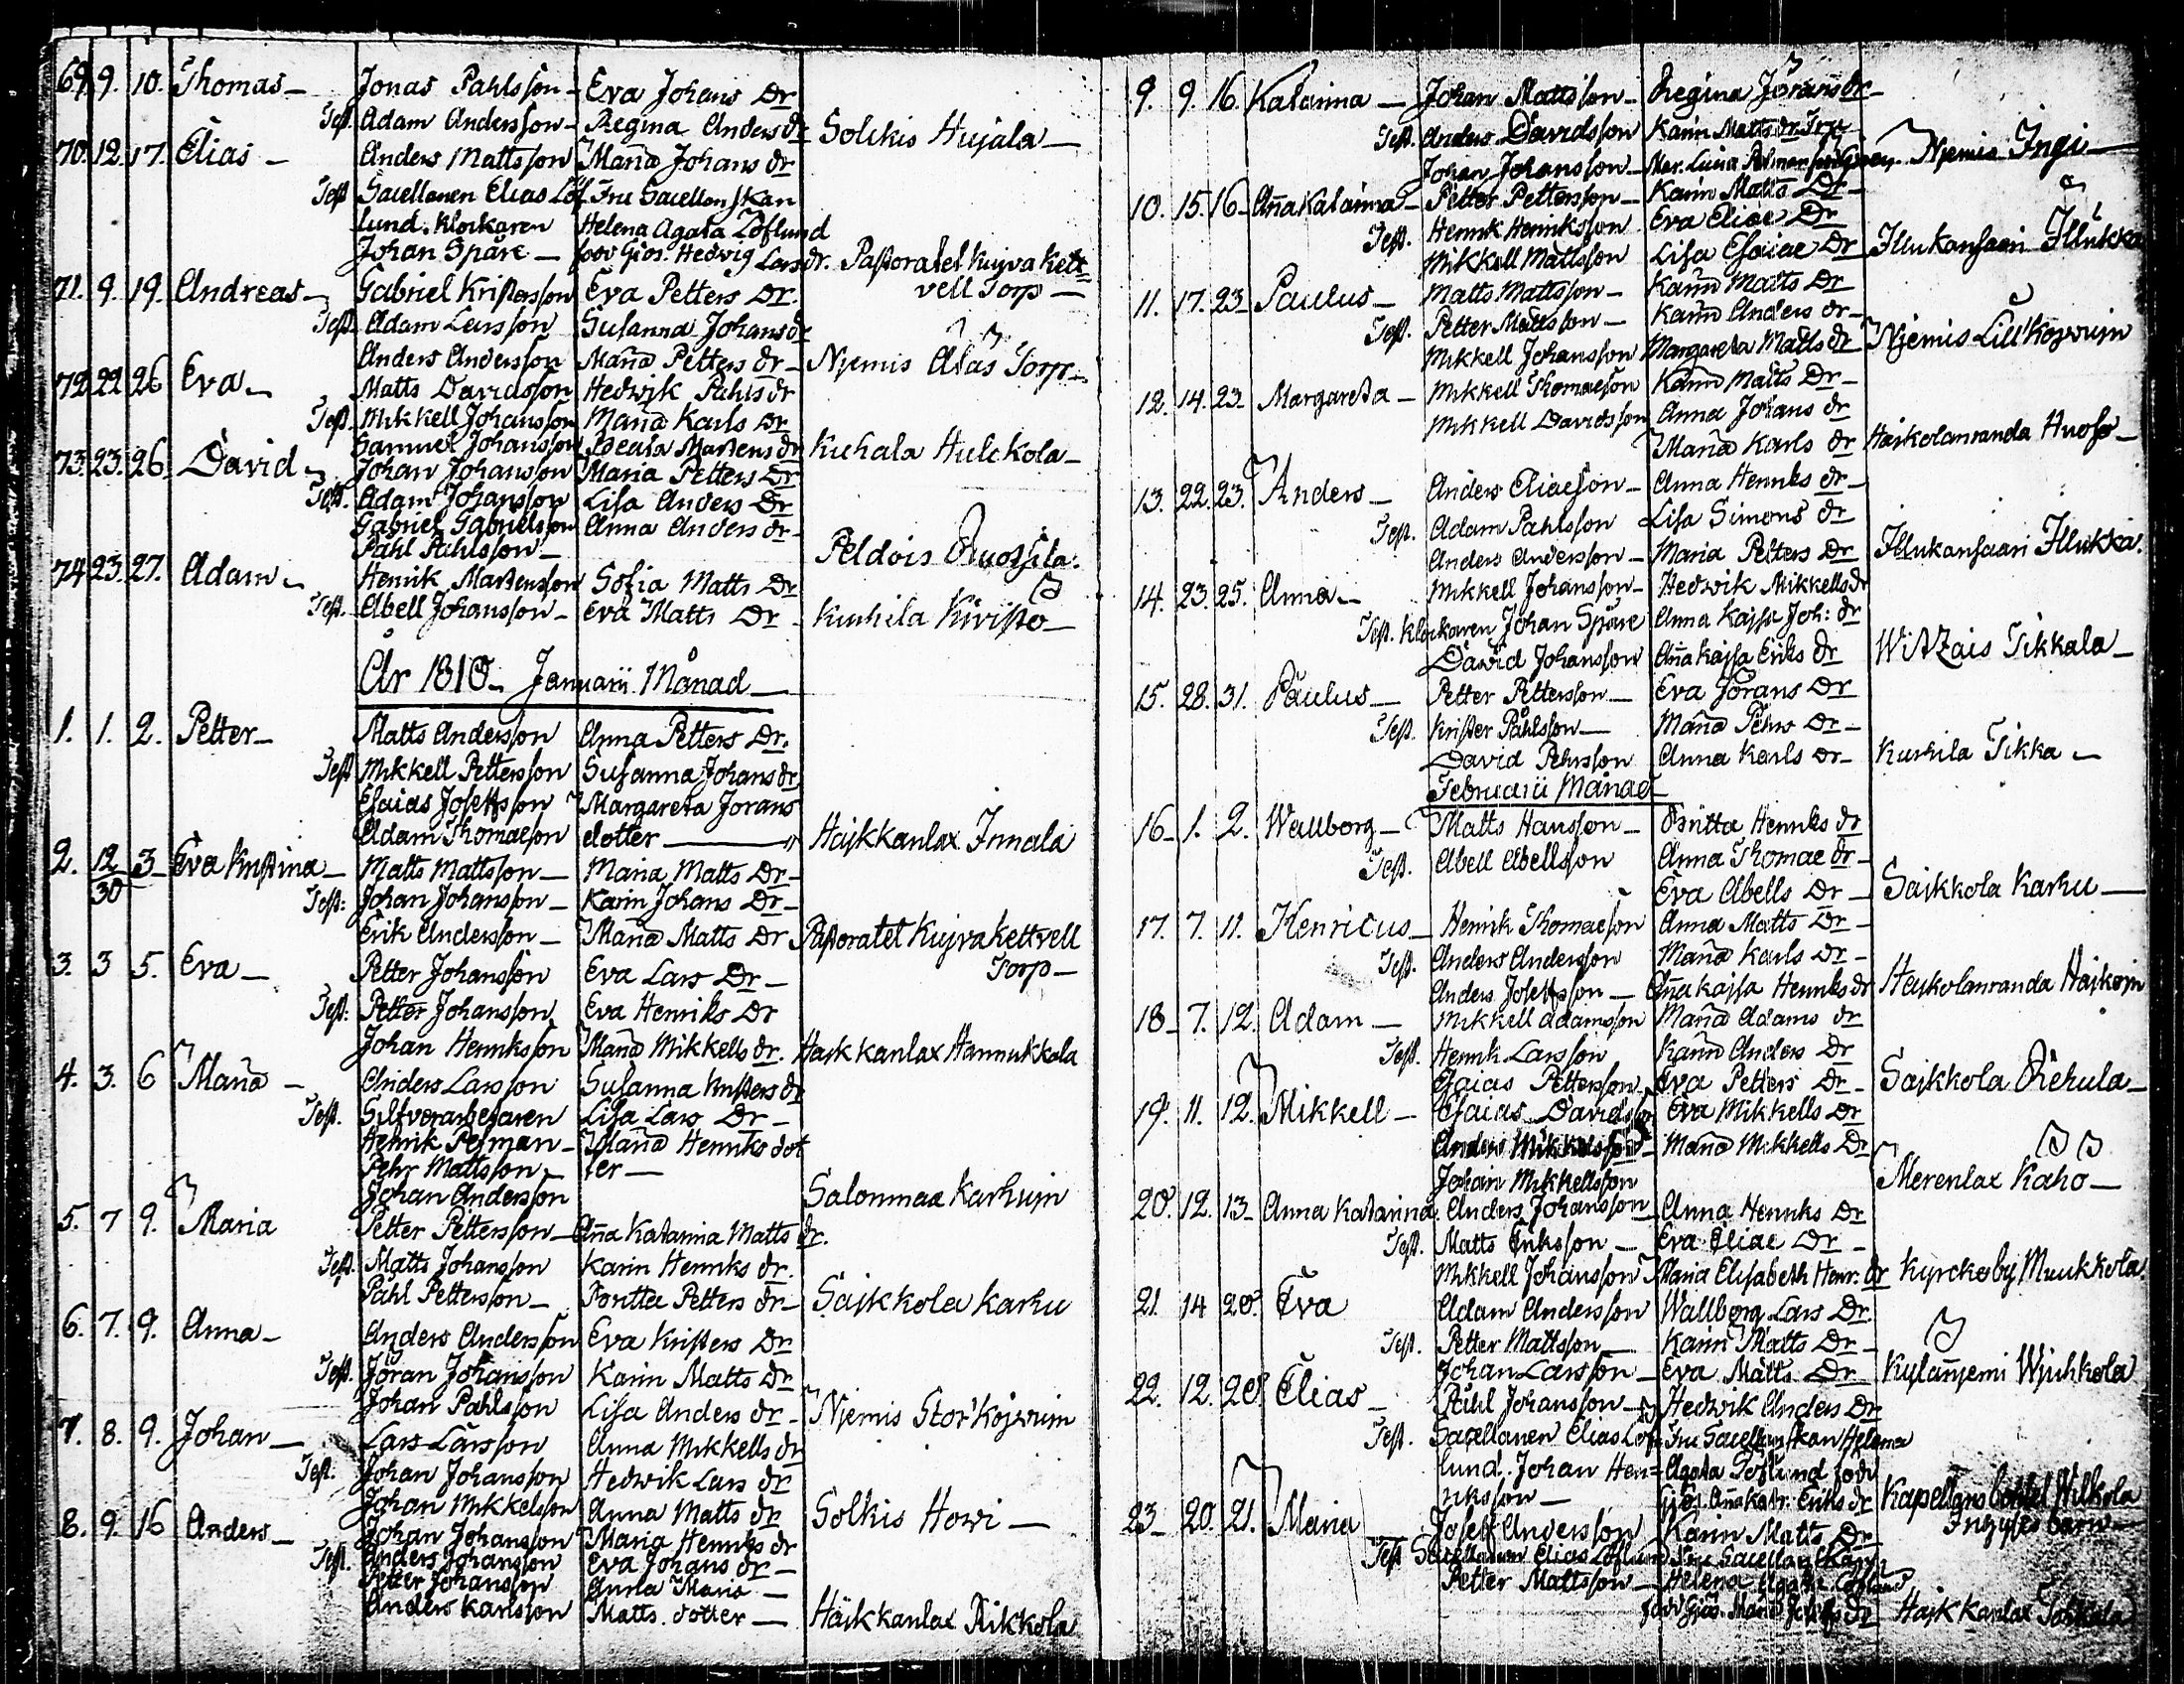 69. 9. 10. Thomas— Jonas Pahlsson— Eva Johans Dr
Test. Adam Andersson— Regina Anders dr Solckis Hujala—
70. 12. 17. Elias— Anders Mattsson Maria Johans dr
Test. Sacellanen Elias Löf Fru Sacellanskan
lund. Klockaren Helena Agata Löflund
Johan Spåre— Hedwig Lars dr. Pastoratet Kujva Kett=
71. 9. 19. Andreas— Gabriel Kristersson Eva Petters Dr. vell Torp—
Test. Adam Larsson Susanna Johans dr
Anders Andersson Maria Petters dr— Njemis Torp—
72. 22 26 Eva— Matts Davidsson Hedwik Pahls dr
Test. Mikkell Johansson Maria Karls Dr
Samuel Johansson Beata Martens dr Kuhala Hulckola—
73. 23. 26. David— Johan Johansson Maria Petters Dr
Test. Adam Johansson Lisa Anders Dr
Gabriel Gabrielsson Anna Anders dr—
Pahl Pahlsson— Peldois
74 23. 27. Adam— Henrik Martensson Sofia Matts Dr
Test. Abell Johansson— Eva Matts Dr— Kurkila Kiristo—
År 1810— Januarii Månad—
1. 1. 2. Petter— Matts Andersson Anna Petters Dr.
Test Mikkell Pettersson Susanna Johans dr
Esaias Joseffsson Margareta Jorans
Adam Thomaeson dotter— Hajkkanlax Innala
2. 12/30 3— Eva Kristina— Matts Mattsson— Maria Matts Dr—
Test: Johan Johansson— Karin Johans Dr—
Erik Andersson— Maria Matts Dr Pastoratet Kujva Kettvell
3. 3 5. Eva— Petter Johansson Eva Lars Dr— Torp—
Test: Petter Johansson Eva Henriks Dr
Johan Henriksson Maria Mikkells dr. Hajkkanlax Hannukkala
4. 3. 6 Maria— Anders Larsson Susanna Kristers dr
Test. Silfverarbetaren Lisa Lars Dr—
Henrik Pesman— Maria Henriks dot
Pehr Mattsson— ter—
Johan Andersson Salonmaa Karhujn
5. 7 9. Maria Petter Pettersson— Aña Katarina Matts dr.
Test. Matts Johansson Karin Henriks dr.
Pahl Pettersson— Britta Petters dr— Sajkkola Karhu
6. 7. 9. Anna— Anders Andersson Eva Kristers Dr
Test. Jöran Johansson Karin Matts Dr
Johan Pahlsson Lisa Anders dr— Njemis Stor'Kojvuin
7. 8. 9. Johan— Lars Larsson Anna Mikkells dr
Test. Johan Johansson Hedwik Lars dr
Johan Mikkelsson Anna Matts dr Solkis Howi—
8. 9. 16 Anders— Johan Johansson Maria Henriks dr
Test. Anders Johansson Eva Johans dr—
Petter Johansson Anna Maria—
Anders Karlsson Matts dotter— Häjkkanlax Rikkola
9. 9. 16. Katarina— Johan Mattsson— Regina Jörans dr—
Test. Anders Davidsson Karin Matts dr.
Johan Johansson— Mar. Lucia Njemis Ingi—
10. 15. 16— Aña Katarina— Petter Pettersson— Karin Matts Dr—
Test. Henrik Henriksson Eva Eliae Dr
Mikkell Mattsson Lisa Esaiae Dr Illukansaari Illukka
11. 17. 23— Paulus— Matts Mattsson— Karin Matts Dr
Test. Petter Mattsson— Karin Anders dr—
Mikkell Johansson Margareta Matts dr Njemis Lill'Kojvuin
12. 14. 23— Margareta— Mikkell Thomaeson Karin Matts Dr—
Mikkell Davidsson Anna Johans dr
Maria Karls dr Hajkolanranda
13. 22. 23. Anders— Anders Eliaeson— Anna Henriks dr—
Test. Adam Pahlsson Lisa Simons dr
Anders Andersson— Maria Petters Dr Illukansaari Illukka.
14. 23. 25. Anna— Mikkell Johansson— Hedwik Mikkells dr
Test. Klockaren Johan Spåre Anna Kajsa Joh: dr
David Johansson Aña Kajsa Eriks dr Wittzais Tikkala—
15. 28. 31. Paulus— Petter Pettersson— Eva Jörans Dr
Test. Krister Påhlsson— Maria Pehrs Dr—
David Pehrsson Anna Karls Dr— Kurkila Tikka—
Februarii Månad
16— 1. 2. Wallborg— Matts Hansson— Britta Henriks dr
Test. Abell Abellsson Anna Thomae dr—
Eva Abells Dr— Sajkkola Karhu—
17. 7. 11. Henricus— Henrik Thomaeson Anna Matts Dr—
Test. Anders Andersson Maria Karls dr—
Anders Joseffsson— Aña Kajsa Henriks dr
18— 7. 12. Adam— Mikkell Adamsson Maria Adams dr
Test. Henrik Larsson Karin Anders Dr
Esaias Pettersson— Eva Petters Dr— Sajkkola Rehula—
19. 11. 12. Mikkell— Esaias Davidsson Eva Mikkells Dr
Anders Mikkelsson— Maria Mikkells Dr
Johan Mikkellsson Merenlax Kaho—
20. 12. 13— Anna Katarina. Anders Johansson Anna Henriks Dr
Test. Matts Eriksson— Eva Eliae Dr—
Mikkell Johansson Maria Elisabeth Henr: dr Kyrckoby Muukkola.
21. 14 20. Eva Adam Andersson Wallborg Lars Dr.
Test. Petter Mattsson— Karin Matts Dr—
Johan Larsson— Eva Matts Dr
22. 12. 20. Elias— Påhl Johansson— Hedwik Anders Dr
Test. Sacellanen Elias Löf Fru Sacellanskan Helena
lund. Johan Hen= Agata Löflund
riksson— Aña Katr: Eriks dr Wilkola
23— 20. 21. Maria— Joseff Andersson Karin Matts Dr
Test Sacellanen Elias Löflund Fru Sacellanskan
Petter Mattsson— Helena Agata Löflund
Maria Joseffs dr Hajkkanlax